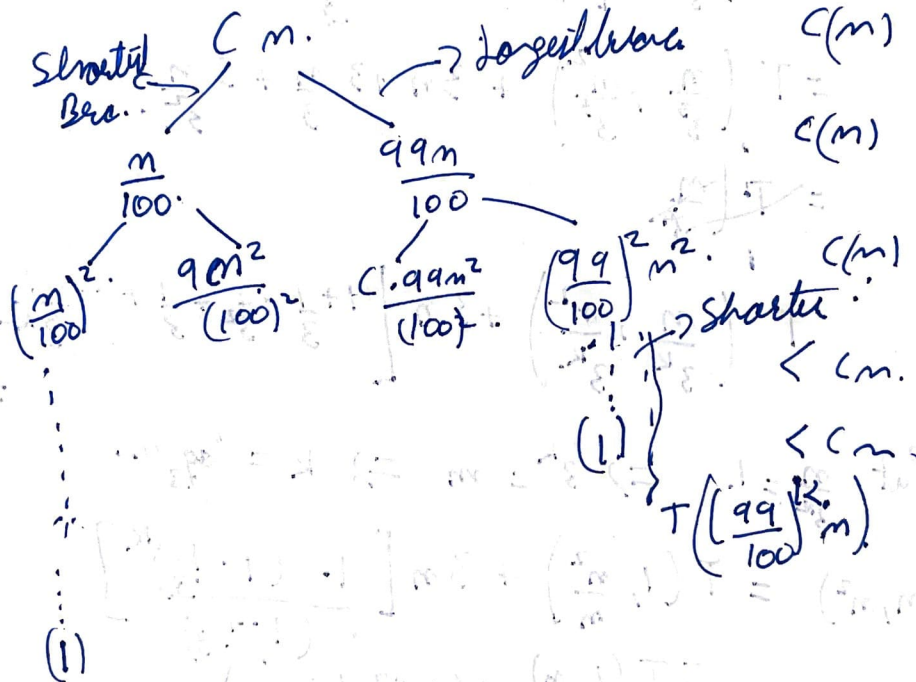 C n. C(n)
Shortest Bra.. → Longest branc
n/100. 99n/100 C(n)
(n/100)². 9en²/(100)² C.99n²/(100)². (99/100)² n². C(n)
→ Shorter
< Cn.
(1) < Cn
T((99/100)^K. n)
(1)